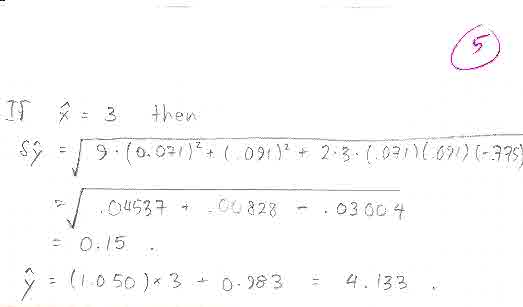 5
If x̂ = 3 then
Sŷ = √9·(0.071)² + (.091)² + 2·3·(.071)(.091)(-.775)
= √.04537 + .00828 - .03004
= 0.15 .
ŷ = (1.050)×3 + 0.983 = 4.133 .